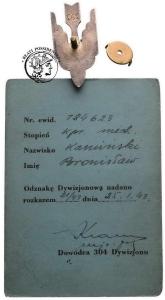 Nr. ewid. 784623
Stopień kpr. med.
Nazwisko Kamiński
Imię Bronisław
Odznakę Dywizjonową nadano
rozkazem 21/43 dnia 25.1.43.
Dowódca 304 Dywizjonu